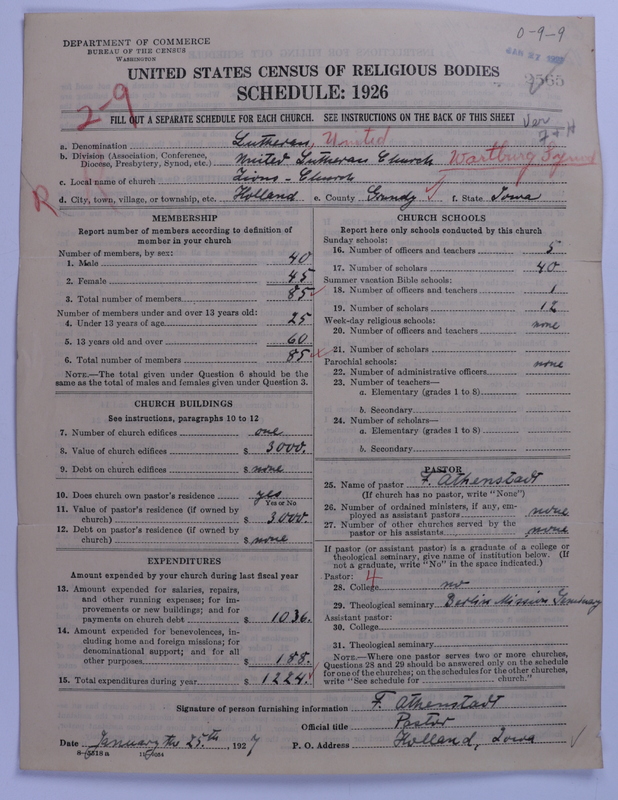 0-9-9
DEPARTMENT OF COMMERCE
BUREAU OF THE CENSUS
WASHINGTON
9565
UNITED STATES CENSUS OF RELIGIOUS BODIES
SCHEDULE: 1926
2-9
FILL OUT A SEPARATE SCHEDULE FOR EACH CHURCH. SEE INSTRUCTIONS ON THE BACK OF THIS SHEET
Ver
a. Denomination Lutheran, United
b. Division (Association, Conference, Diocese, Presbytery, Synod, etc.) United Lutheran Church Wartburg Synod
c. Local name of church Zions-Church
R
d. City, town, village, or township, etc. Holland e. County Grundy f. State Iowa
MEMBERSHIP
Report number of members according to definition of member in your church
Number of members, by sex:
1. Male 40
2. Female 45
3. Total number of members 85
Number of members under and over 13 years old:
4. Under 13 years of age 25
5. 13 years old and over 60
6. Total number of members 85
NOTE.—The total given under Question 6 should be the same as the total of males and females given under Question 3.
CHURCH BUILDINGS
See instructions, paragraphs 10 to 12
7. Number of church edifices one
8. Value of church edifices $ 3000.
9. Debt on church edifices $ none
10. Does church own pastor's residence yes
Yes or No
11. Value of pastor's residence (if owned by church) $ 3000.
12. Debt on pastor's residence (if owned by church) $ none
EXPENDITURES
Amount expended by your church during last fiscal year
13. Amount expended for salaries, repairs, and other running expenses; for improvements or new buildings; and for payments on church debt $ 1036.
14. Amount expended for benevolences, including home and foreign missions; for denominational support; and for all other purposes $ 188.
15. Total expenditures during year $ 1224.
CHURCH SCHOOLS
Report here only schools conducted by this church
Sunday schools:
16. Number of officers and teachers 5
17. Number of scholars 40
Summer vacation Bible schools:
18. Number of officers and teachers 1
19. Number of scholars 12
Week-day religious schools:
20. Number of officers and teachers none
21. Number of scholars
Parochial schools:
22. Number of administrative officers none
23. Number of teachers—
a. Elementary (grades 1 to 8)
b. Secondary
24. Number of scholars—
a. Elementary (grades 1 to 8)
b. Secondary
PASTOR
25. Name of pastor F. Athenstadt
(If church has no pastor, write "None")
26. Number of ordained ministers, if any, employed as assistant pastors none
27. Number of other churches served by the pastor or his assistants none
If pastor (or assistant pastor) is a graduate of a college or theological seminary, give name of institution below. (If not a graduate, write "No" in the space indicated.)
Pastor: 4
28. College no
29. Theological seminary Berlin Mission Seminary
Assistant pastor:
30. College
31. Theological seminary
NOTE.—Where one pastor serves two or more churches, Questions 28 and 29 should be answered only on the schedule for one of the churches; on the schedules for the other churches, write "See schedule for church."
Signature of person furnishing information F. Athenstadt
Official title Pastor
Date January the 25th, 1927 P. O. Address Holland, Iowa